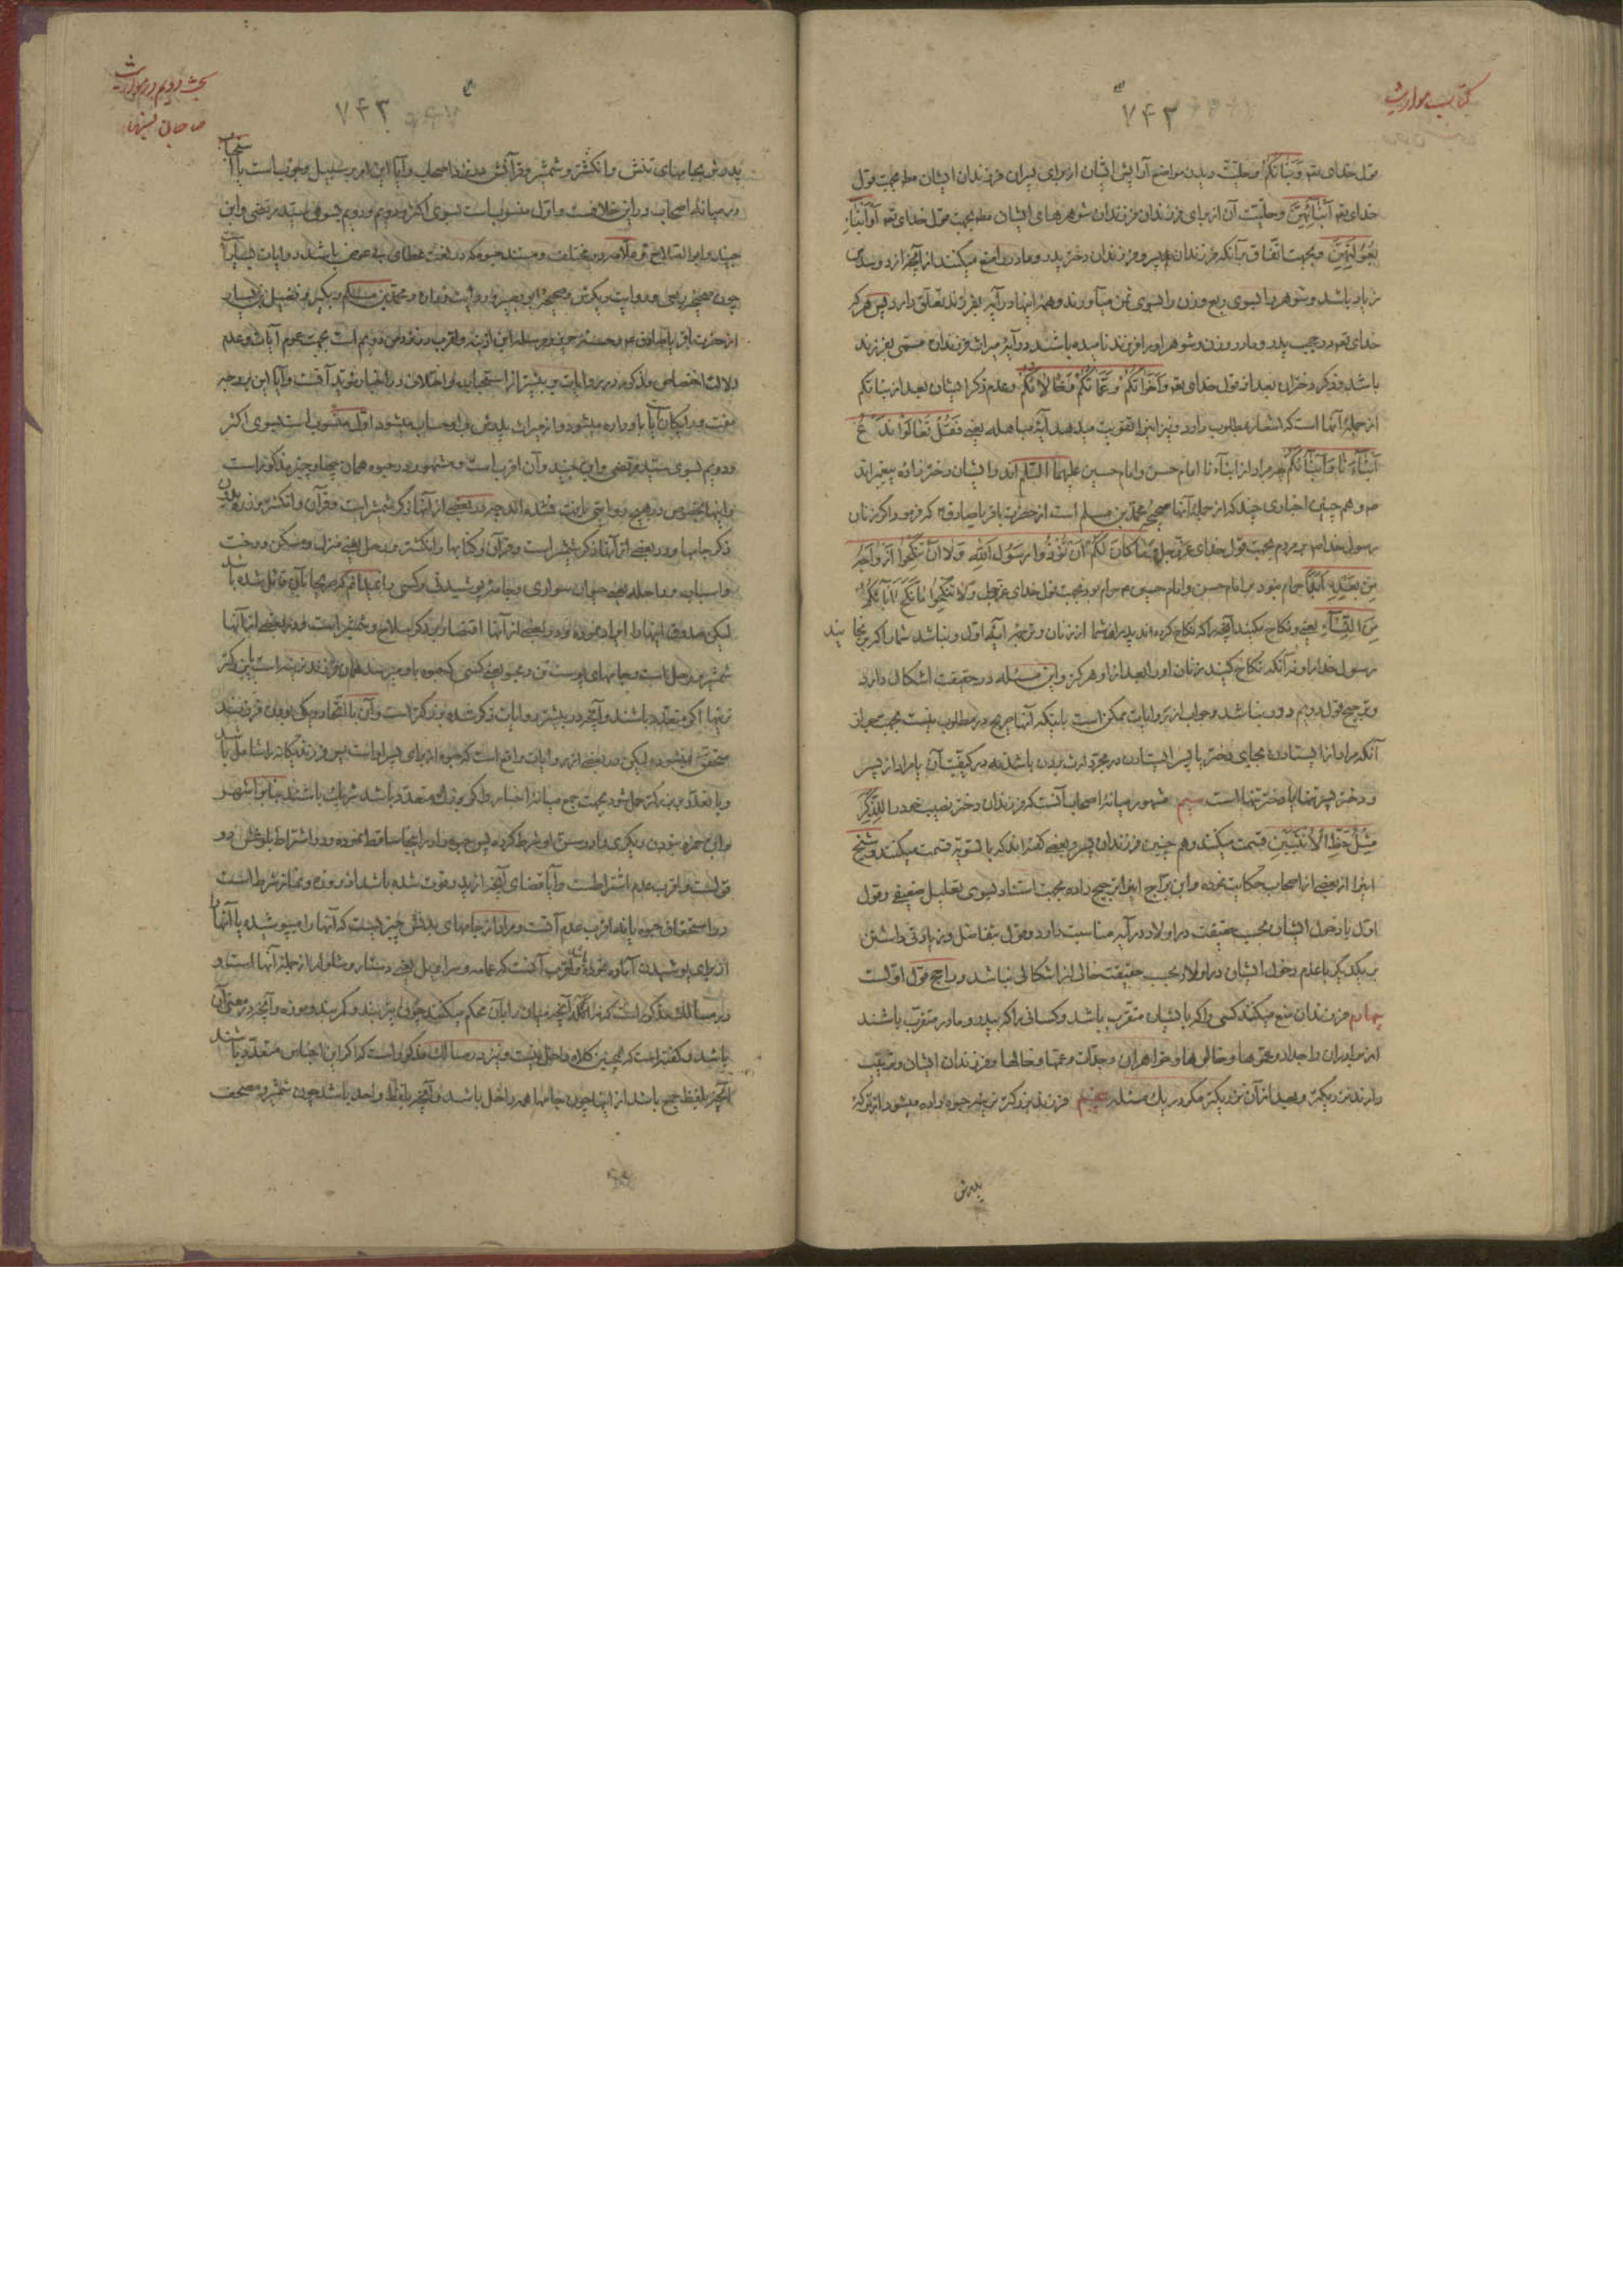 کتاب مواریث
۷۴۲
قول خدای تعم وَبَنَاتُكُمْ وحلیّت دیدن مواضع آرایش ایشان از برای پسران فرزندان ایشان بجهت قول
خدای تعم اَبْنَآئِهِنَّ وحلیّت آن از برای فرزندان فرزندان شوهرهای ایشان بجهت قول خدای تعم اَوْ اَبْنَاءِ
بُعُولَتِهِنَّ وبجهت اتّفاق برآنکه فرزندان پسر وفرزندان دختر پدر ومادر را منع میکنند از آنچه از دو سدس
زیاد باشد وشوهر را بسوی ربع وزن را بسوی ثمن میآورند وهمهٔ اینها در آیه بفرزند تعلّق دارد پس هرکه
خدای تعم در حجب پدر ومادر وزن وشوهر او را فرزند نامیده باشد در آیهٔ میراث فرزندان مسمّی بفرزند
باشد وذکر دختران بعد از قول خدای تعم وَاَخَوَاتُكُمْ وَعَمَّاتُكُمْ وَخَالَاتُكُمْ وعدم ذکر ایشان بعد از بناتکم
از جملهٔ آنها است که اشعار بمطلوب دارد ونیز این را تقویت میدهد آیهٔ مباهله یعنی فَقُلْ تَعَالَوْا نَدْعُ
اَبْنَآءَنَا وَاَبْنَآءَكُمْ چه مراد از ابنآءنا امام حسن وامام حسین علیهما السّلم اند وایشان دخترزاده پیغمبراند
ص وهم چنین اخباری چند که از جملهٔ آنها صحیحهٔ محمّد بن مسلم است از حضرت باقر یا صادق ع که فرمود اگر زنان
رسول خدا ص بر مردم بجهت قول خدای عزّ وجل وَمَا كَانَ لَكُمْ اَنْ تُؤْذُوا رَسُولَ اللهِ وَلَا اَنْ تَنْكِحُوا اَزْوَاجَهُ
مِنْ بَعْدِهِ اَبَدًا حرام نبود بر امام حسن وامام حسین ع حرام بود بجهت قول خدای عزّ وجل وَلَا تَنْكِحُوا مَا نَكَحَ آبَآئُكُمْ
مِنَ النِّسَآءِ یعنی ونکاح مکنید آنچه را که نکاح کرده اند پدران شما از زنان وترجمهٔ آیه اوّل ونباشد شما را که برنجانید
رسول خدا را ونه آنکه نکاح کنید زنان او را بعد از او هرگز واین مسئله در حقیقت اشکال دارد
وترجیح قول دویم دور نباشد وجواب از روایات ممکن است باینکه آنها صریح در مطلوب نیست بجهت جواز
آنکه مراد از ایستادن بجای دختر یا پسر ایستادن در مجرّد ارث بردن باشد نه در کیفیّت آن یا مراد از پسر
ودختر پسر تنها یا دختر تنها است سیم مشهور میانهٔ اصحاب آنست که فرزندان دختر نصیب خود را لِلذَّكَرِ
مِثْلُ حَظِّ الْاُنْثَيَيْنِ قسمت میکنند وهم چنین فرزندان پسر وبعضی گفته اند که بالسّویّه قسمت میکنند وشیخ
این را از بعضی از اصحاب حکایت نموده وابن برّاج این را ترجیح داده بجهت استناد بسوی تعلیل ضعیفی وقول
اوّل با دخول ایشان بحسب حقیقت در اولاد در آیه مناسبت دارد وقول بتفاضل وزیادتی داشتن
بر یکدیگر با عدم دخول ایشان در اولاد بحسب حقیقت خالی از اشکالی نباشد وراجح قول اوّلست
چهارم فرزندان منع میکنند کسی را که بایشان متقرّب باشد وکسانی را که بپدر ومادر متقرّب باشند
از برادران واجداد وعموها وخالوها وخواهران وجدّات وعمّها وخالها وفرزندان ایشان وترتیب
دارند نزدیکتر وبعد از آن نزدیکتر مگر در یک مسئله پنجم فرزند بزرگتر نرینه حبوه داده میشود از ترکهٔ
پدرش
بحث دویم در مواریث
صاحبان نسبها
۷۴۳
پدرش بجامهای تنش وانگشتر وشمشیر وقرآنش نزد اصحاب وآیا این امر بر سبیل وجوبست یا استحباب
در میانهٔ اصحاب در این خلافست واوّل منسوب است بسوی اکثر ودویم بسوی سیّد مرتضی وابن
جنید وابو الصلاح وعلّامه در مختلف ومستند حبوه که در لغت عطای بی عوض باشد روایات بسیار است
چون صحیحهٔ ربعی وروایت دیگرش وصحیحهٔ ابو بصیر وروایت زراره ومحمّد بن مسلم وبکیر وفضیل بن یسار
از حضرت باقر یا صادق ع وحسنهٔ حریز ومرسلهٔ ابن اذینه واقرب نزد من دویم است بجهت عموم آیات وعدم
دلالت اختصاص مذکور در روایات بر بیشتر از استحباب واختلاف در اخبار مؤید آنست وآیا این بر وجه
مفت ورایگان باو داده میشود یا از میراث پدرش بر او حساب میشود اوّل منسوب است بسوی اکثر
ودویم بسوی سیّد مرتضی وابن جنید وآن اقرب است ومشهور در حبوه همان چهار چیز مذکور است
واینها بخصوص در هیچ روایتی ثابت نشده اند چه در بعضی از آنها ذکر شمشیر است وقرآن وانگشتر وزره بدون
ذکر جامها ودر بعضی از آنها ذکر شمشیر است وقرآن وکتابها وانگشتر ورحل یعنی منزل ومسکن ورخت
واسباب وراحله یعنی حیوان سواری وجامهٔ پوشیدنی وکسی را نمیدانم که بهمهٔ آن قائل شده باشد
لیکن صدوق اینها را ایراد نموده ودر بعضی از آنها اقتصار بذکر سلاح وشمشیر است ودر بعضی از آنها
شمشیر ورحل است وجامهای پوست تن ومحبوّ یعنی کسی که حبوه باو میرسد همان فرزند نرینه است یا بزرگتر
نرینها اگر متعدّد باشند وآنچه در بیشتر روایات ذکر شده بزرگتر است وآن با اتّحاد ویکی بودن فرزند
متحقّق نمیشود لیکن در بعضی از روایات واقع است که حبوه از برای پسر او است پس فرزند یگانه را شامل باشد
وبا تعدّد بر بزرگتر حمل شود بجهت جمع میانهٔ اخبار واگر بزرگ متعدّد باشد شریک باشند بنابر اشهر
وابن حمزه نبودن دیگری را در سنّ او شرط کرده پس حبوه را در اینجا ساقط نموده ودر اشتراط بلوغش دو
قولست واقرب عدم اشتراطست وآیا قضای آنچه از پدر فوت شده باشد از روزه ونماز شرط است
در استحقاق حبوه یا نه اقرب عدم آنست ومراد از جامهای بدنش چیزیست که آنها را میپوشیده یا آنها را
از برای پوشیدن آماده نموده واقرب آنست که عمامه وسراویل یعنی دستار وشلوار از جملهٔ آنها است و
در مسالک مذکور است که نه از جمله آنچه میان را بآن محکم میکنند چون میزربند وکمربند وموزه وآنچه در معنی آن
باشد وگفته است که همچنین کلاه داخل نیست ونیز در مسالک مذکور است که اگر این اجناس متعدّد باشند
آنچه بلفظ جمع باشد از اینها چون جامها همه داخل باشد وآنچه بلفظ واحد باشد چون شمشیر ومصحف